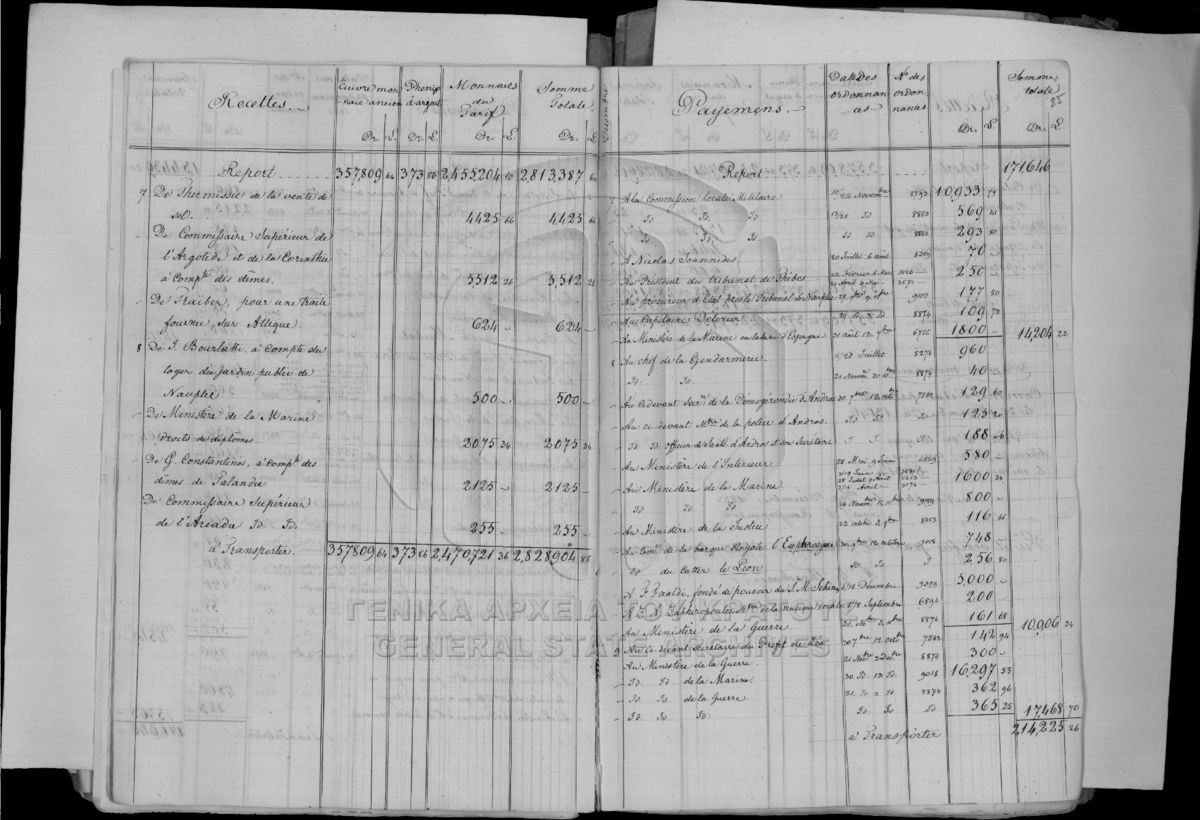 Recettes.
Cuivre mon
naie ancien
Phenix
d'argent
Monnaies
du
Tarif
Somme
Totale
Dr. L. Dr. L. Dr. L. Dr. L.
Report 357809 64 373 86 2,455204 10 2,813,387 60
7 De Thermissie de la vente de
sel. 4425 66 4425 66
De Commissaire Supérieur de
l'Argolide et de la Corinthie
à Compte des dîmes. 5512 26 5,512 26
De Fraiber, pour une traite
fournie, sur Attique 624 - 624 -
8 De J. Bourlakki à Compte du
loyer du jardin public de
Nauplie 500 - 500 -
De Ministère de la Marine
droits de diplomes 2075 34 2075 34
De G. Constantinos, à Compte des
dîmes de 2125 - 2125 -
De Commissaire Supérieur
de l'Arcadie Id. Id. 255 - 255 -
à Transporter. 357809 64 373 86 2,470,721 36 2,828,904 86
Payemens.
Date des
ordonnan
ces
Nos des
ordon-
nances
Somme
totale
85
Dr. L. Dr. L.
Report 171646
7 A la Commission locale Militaire 10/22 Novembre 8790 10,933 79
Id. Id. Id. 13/25 Id 8863 569 41
Id. Id. Id. Id Id 8863 293 80
A Nicolas Ioannides 20 Juillet 1 août 5309 70 -
Au Président du tribunal de Thèbes 250 -
Au procureur d'Etat près le Tribunal de Nauplie 9103 177 50
Au Capitaine 8874 109 72
Au Ministère de la Marine d'Espagne 31 août 12 7bre 6766 1800 - 14,204 22
8 Au chef de la Gendarmerie. 1/20 Juillet 5274 960
Id. Id. 8874 40 -
Au cidevant Secr. de la Domogerondie d'Andros 30 7bre 12 octbre 7562 129 60
Au ci devant Mtre de la police d'Andros. Id Id Id 125 20
Id. Id. officier de Santé d'Andros et son Secrétaire 188 06
Au Ministère de l'Intérieur 28 Mai 9 Juin 580 -
Au Ministère de la Marine. 1600 24
Id Id Id 9103 800 -
Au Ministère de la Justice 22 octob 2 9bre 116 66
Au Come de la barque Royale l'Euphrosyne 9018 748
Id du Cutter le Lion Id. Id. 256 80
A F. Faaldi, fondé de pouvoir du S.M. 1/12 Décembre 9393 3,000 -
A Z. N. Zaphiropoulos, Mtre de la musique vocale 5/17 Septembre 6892 200 -
Au Ministère de la Guerre 8874 161 68 10,906 34
9 Au ci devant secrétaire du Préfet de Zéa 30 7bre 12 octbre 7562 142 94
Au Ministère de la Guerre. 8874 300 -
Id. Id. de la Marine. 9018 16,297 55
Id. Id. de la Guerre. 8874 362 96
Id. Id. Id. Id. Id. Id 365 25 17,468 70
à Transporter 214,225 26
ΓΕΝΙΚΑ ΑΡΧΕΙΑ ΤΟΥ ΚΡΑΤΟΥΣ
GENERAL STATE ARCHIVES